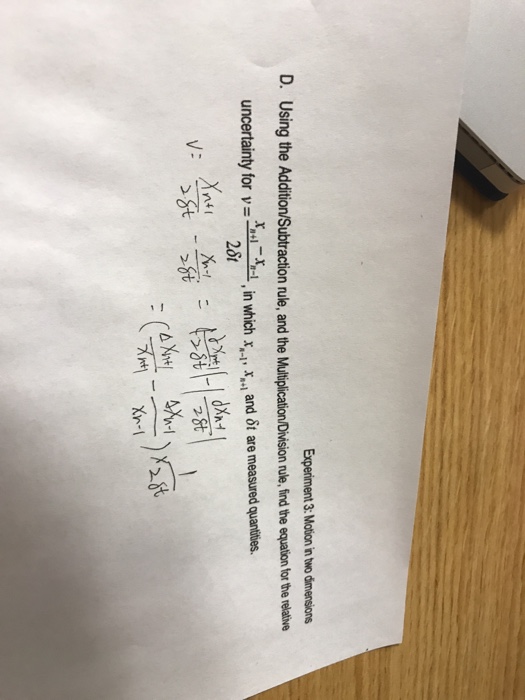 Experiment 3: Motion in two dimensions
D. Using the Addition/Subtraction rule, and the Multiplication/Division rule, find the equation for the relative
uncertainty for v = (xₙ₊₁ − xₙ₋₁)/(2δt), in which xₙ₋₁, xₙ₊₁ and δt are measured quantities.
v = Xn+1/2δt − Xn-1/2δt = |dXn+1/2δt| − |dXn-1/2δt|
= (ΔXn+1/Xn+1 − ΔXn-1/Xn-1) × 1/2δt